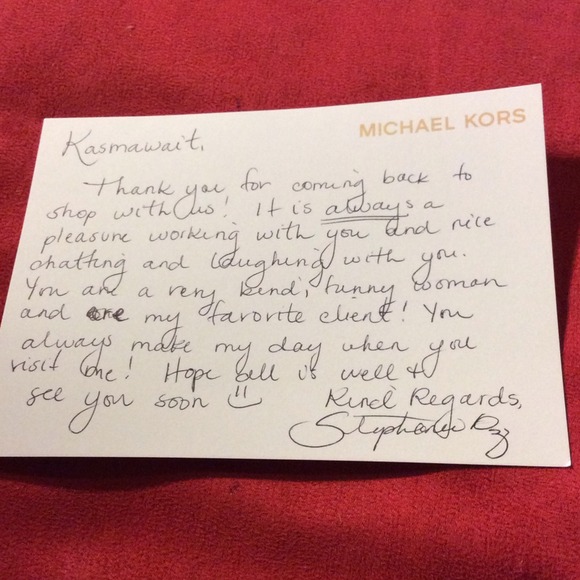 MICHAEL KORS
Kasmawait,
Thank you for coming back to
shop with us! It is always a
pleasure working with you and nice
chatting and laughing with you.
You are a very kind, funny woman
and are my favorite client! You
always make my day when you
visit me! Hope all is well &
see you soon
Kind Regards,
Stephanie